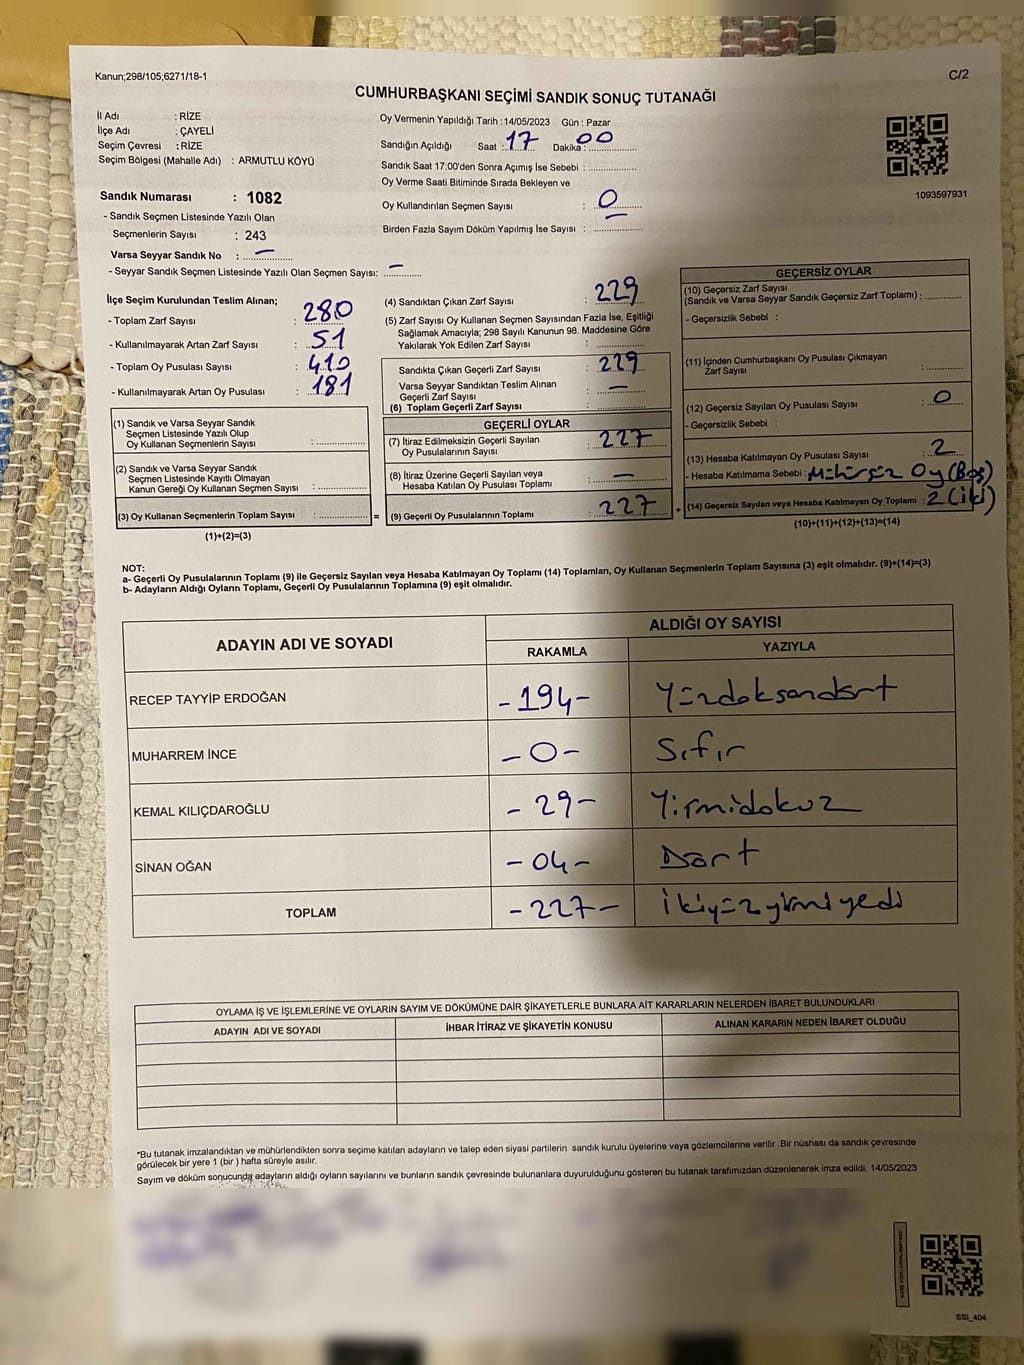 Kanun;298/105,6271/18-1
C/2
CUMHURBAŞKANI SEÇİMİ SANDIK SONUÇ TUTANAĞI
İl Adı : RİZE
İlçe Adı : ÇAYELİ
Seçim Çevresi : RİZE
Seçim Bölgesi (Mahalle Adı) : ARMUTLU KÖYÜ
Sandık Numarası : 1082
- Sandık Seçmen Listesinde Yazılı Olan
Seçmenlerin Sayısı : 243
Varsa Seyyar Sandık No : —
- Seyyar Sandık Seçmen Listesinde Yazılı Olan Seçmen Sayısı: —
Oy Vermenin Yapıldığı Tarih : 14/05/2023 Gün : Pazar
Sandığın Açıldığı Saat : 17 Dakika : 00
Sandık Saat 17:00'den Sonra Açımış İse Sebebi :
Oy Verme Saati Bitiminde Sırada Bekleyen ve
Oy Kullandırılan Seçmen Sayısı : 0
Birden Fazla Sayım Döküm Yapılmış İse Sayısı :
1093597931
İlçe Seçim Kurulundan Teslim Alınan;
- Toplam Zarf Sayısı : 280
- Kullanılmayarak Artan Zarf Sayısı : 51
- Toplam Oy Pusulası Sayısı : 410
- Kullanılmayarak Artan Oy Pusulası : 181
(1) Sandık ve Varsa Seyyar Sandık
Seçmen Listesinde Yazılı Olup
Oy Kullanan Seçmenlerin Sayısı :
(2) Sandık ve Varsa Seyyar Sandık
Seçmen Listesinde Kayıtlı Olmayan
Kanun Gereği Oy Kullanan Seçmen Sayısı :
(3) Oy Kullanan Seçmenlerin Toplam Sayısı : =
(1)+(2)=(3)
(4) Sandıktan Çıkan Zarf Sayısı : 229
(5) Zarf Sayısı Oy Kullanan Seçmen Sayısından Fazla İse, Eşitliği
Sağlamak Amacıyla; 298 Sayılı Kanunun 98. Maddesine Göre
Yakılarak Yok Edilen Zarf Sayısı :
Sandıkta Çıkan Geçerli Zarf Sayısı : 229
Varsa Seyyar Sandıktan Teslim Alınan
Geçerli Zarf Sayısı : —
(6) Toplam Geçerli Zarf Sayısı :
GEÇERLİ OYLAR
(7) İtiraz Edilmeksizin Geçerli Sayılan
Oy Pusulalarının Sayısı : 227
(8) İtiraz Üzerine Geçerli Sayılan veya
Hesaba Katılan Oy Pusulası Toplamı : —
(9) Geçerli Oy Pusulalarının Toplamı : 227 +
GEÇERSİZ OYLAR
(10) Geçersiz Zarf Sayısı
(Sandık ve Varsa Seyyar Sandık Geçersiz Zarf Toplamı) :
- Geçersizlik Sebebi :
(11) İçinden Cumhurbaşkanı Oy Pusulası Çıkmayan
Zarf Sayısı :
(12) Geçersiz Sayılan Oy Pusulası Sayısı : 0
- Geçersizlik Sebebi :
(13) Hesaba Katılmayan Oy Pusulası Sayısı : 2
- Hesaba Katılmama Sebebi : Mühürsüz Oy (Boş)
(14) Geçersiz Sayılan veya Hesaba Katılmayan Oy Toplamı : 2 (iki)
(10)+(11)+(12)+(13)=(14)
NOT:
a- Geçerli Oy Pusulalarının Toplamı (9) ile Geçersiz Sayılan veya Hesaba Katılmayan Oy Toplamı (14) Toplamları, Oy Kullanan Seçmenlerin Toplam Sayısına (3) eşit olmalıdır. (9)+(14)=(3)
b- Adayların Aldığı Oyların Toplamı, Geçerli Oy Pusulalarının Toplamına (9) eşit olmalıdır.
ADAYIN ADI VE SOYADI
ALDIĞI OY SAYISI
RAKAMLA YAZIYLA
RECEP TAYYİP ERDOĞAN -194- Yüzdoksandört
MUHARREM İNCE -0- Sıfır
KEMAL KILIÇDAROĞLU -29- Yirmidokuz
SİNAN OĞAN -04- Dört
TOPLAM -227- ikiyüzyirmiyedi
OYLAMA İŞ VE İŞLEMLERİNE VE OYLARIN SAYIM VE DÖKÜMÜNE DAİR ŞİKAYETLERLE BUNLARA AİT KARARLARIN NELERDEN İBARET BULUNDUKLARI
ADAYIN ADI VE SOYADI İHBAR İTİRAZ VE ŞİKAYETİN KONUSU ALINAN KARARIN NEDEN İBARET OLDUĞU
*Bu tutanak imzalandıktan ve mühürlendikten sonra seçime katılan adayların ve talep eden siyasi partilerin sandık kurulu üyelerine veya gözlemcilerine verilir .Bir nüshası da sandık çevresinde
görülecek bir yere 1 (bir ) hafta süreyle asılır.
Sayım ve döküm sonucunda adayların aldığı oyların sayılarını ve bunların sandık çevresinde bulunanlara duyurulduğunu gösteren bu tutanak tarafımızdan düzenlenerek imza edildi. 14/05/2023
SSI_404